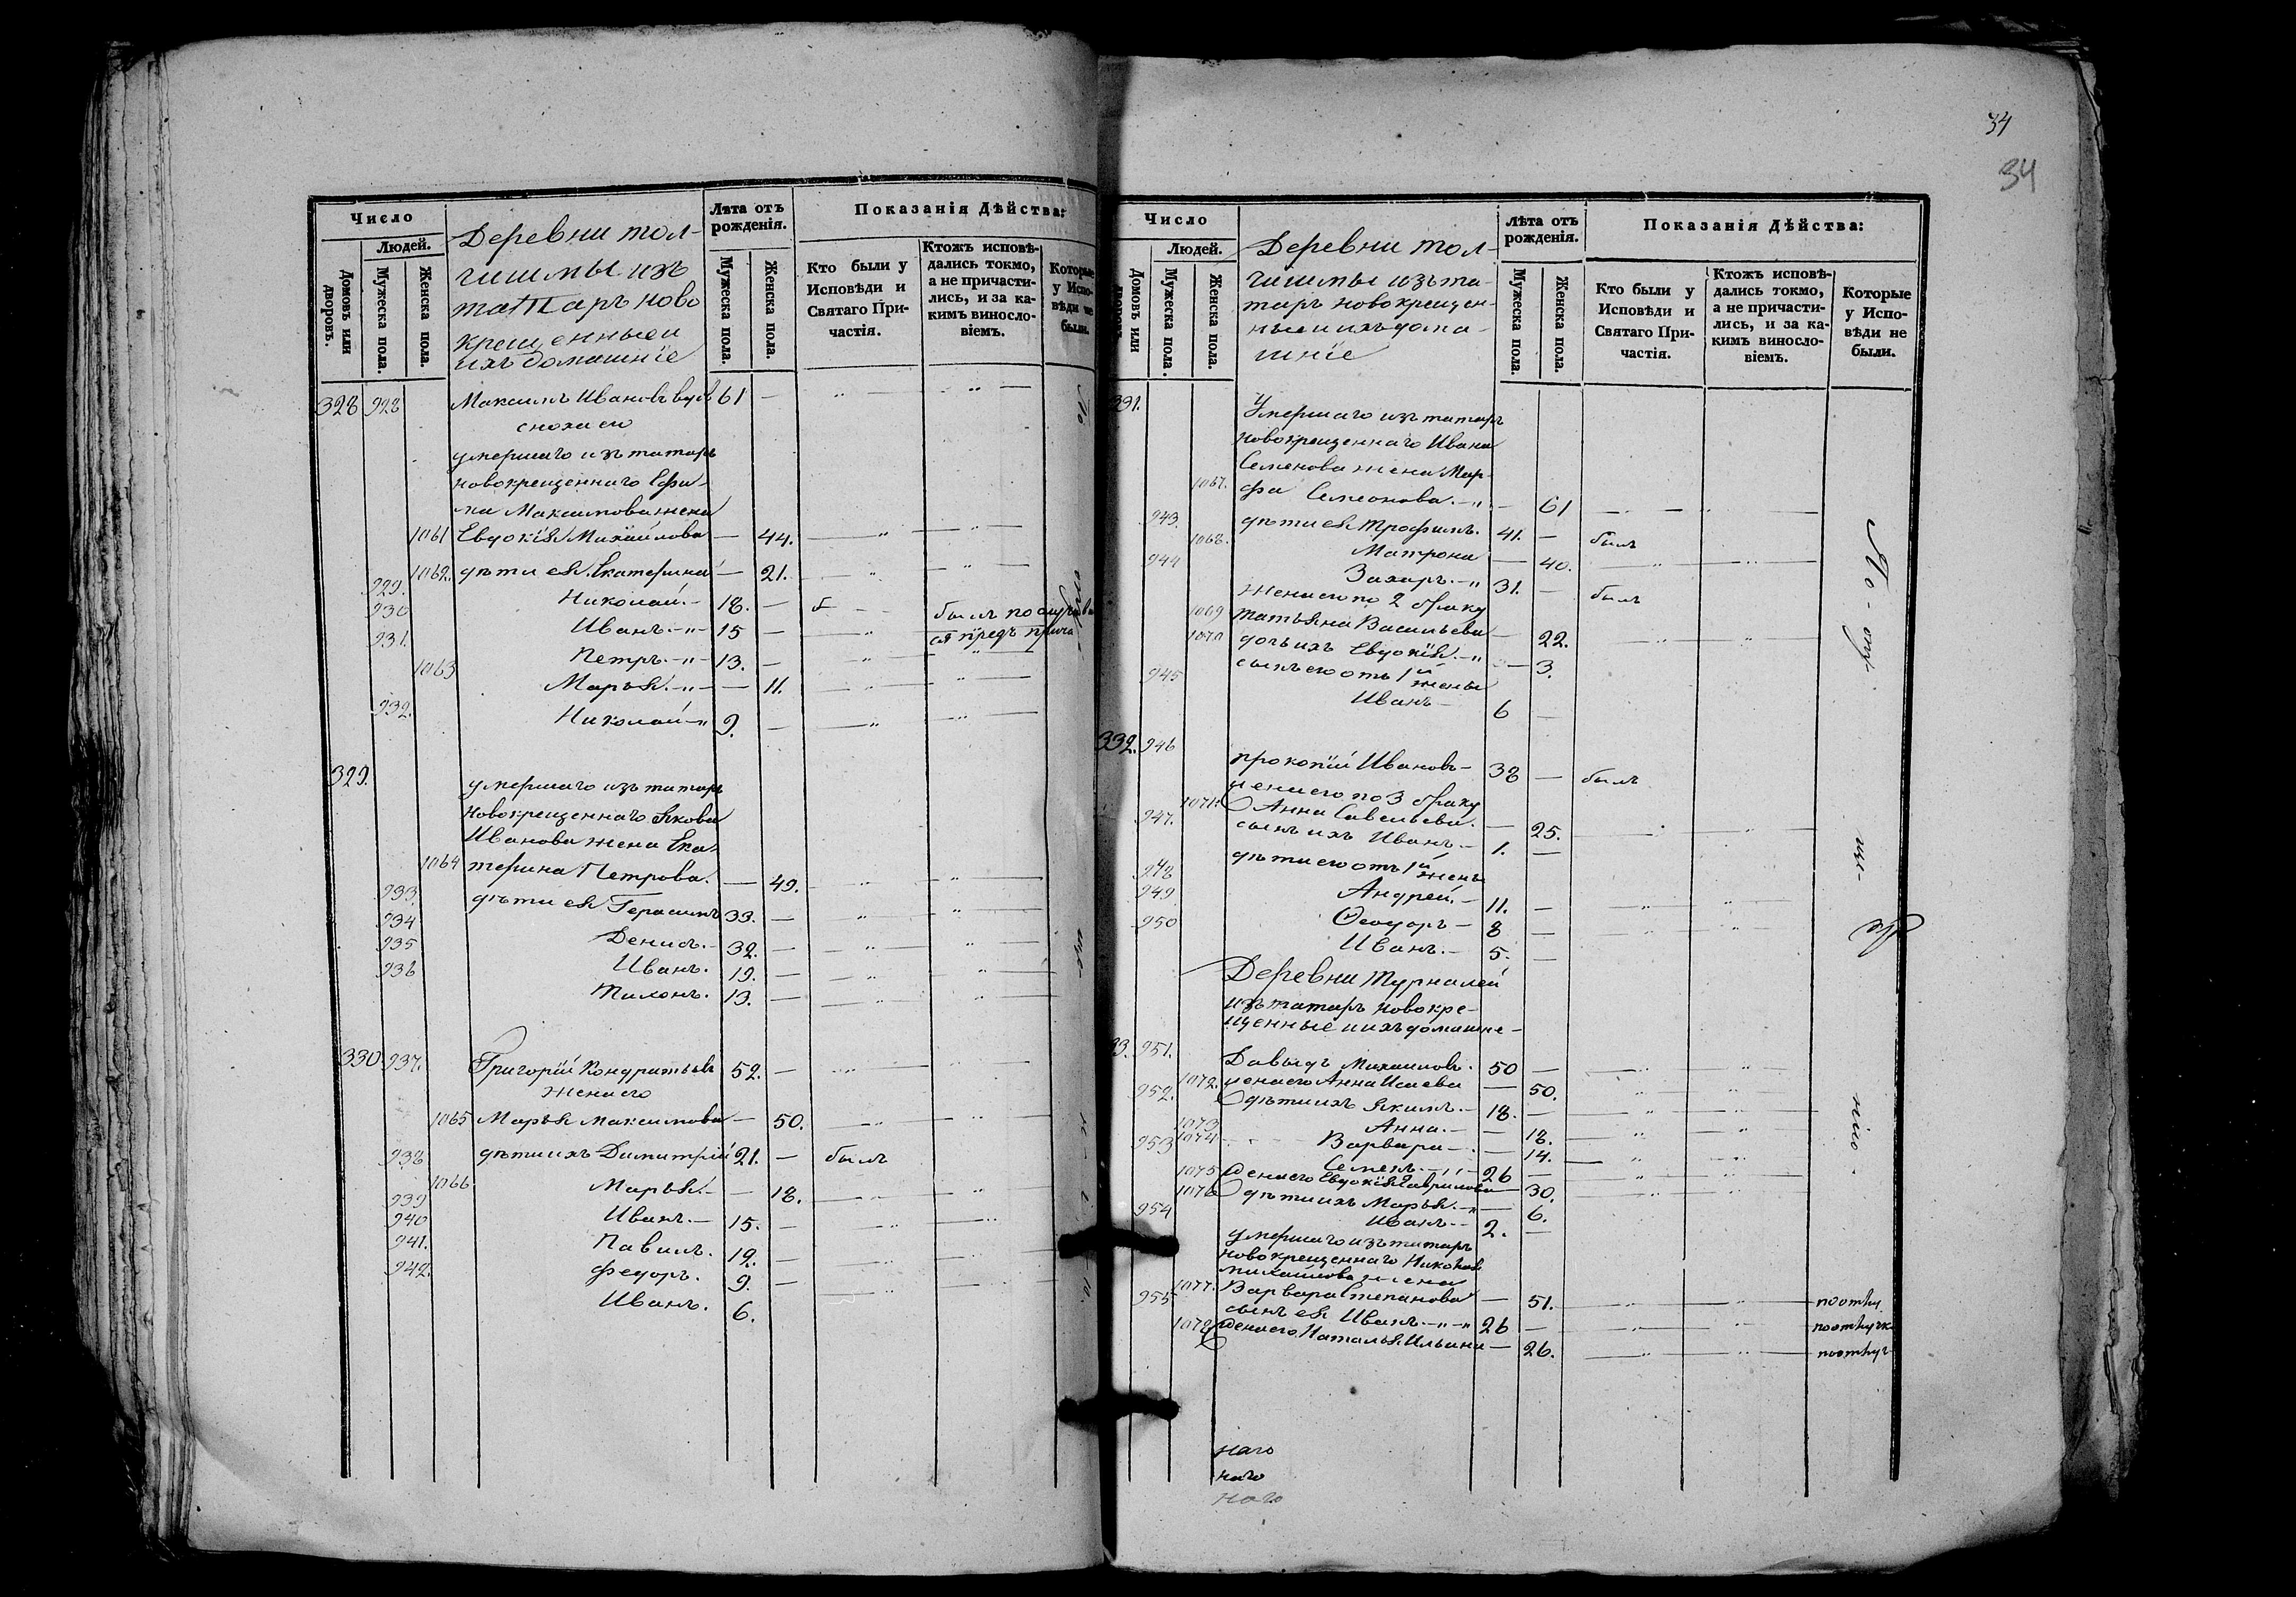 Число
Людей.
Домовъ или дворовъ.
Мужеска пола.
Женска пола.
Деревни тол-
чишмы изъ
татаръ ново
крещенныеи
ихъ домашнїе
Лѣта отъ рожденія.
Мужеска пола.
Женска пола.
Показанія Дѣйства:
Кто были у Исповѣди и Святаго Причастія.
Ктожъ исповѣдались токмо, а не причастились, и за какимъ винословіемъ.
Которые у Исповѣди не были.
328 928 Максимъ Ивановъ вдовъ 61 —
сноха ево
умершаго изъ татаръ
новокрещеннаго Ефи-
ма Максимова жена
1061 Евдокїя Михайлова — 44.
1062. дѣти ея Екатерина — 21.
929. Николай. — 18. —
930 Иванъ. — 15 —
931. Петръ. — 13. —
1063 Марья. — — 11.
932. Николай — 9. —
329. умершаго изъ татаръ
новокрещеннаго Якова
Иванова жена Ека-
1064 терина Петрова. — 49.
933. дѣти ея Герасимъ 33. —
934 Денисъ. — 32. —
935 Иванъ. 19. —
936 Тихонъ. 13. —
330. 937. Григорїй Кондратьевъ 52. —
жена его
1065 Марья Максимова — 50.
938 дѣти ихъ Димитрїй 21. — былъ
1066 Марья. — — 18.
939 Иванъ. — 15. —
940 Павилъ. 12. —
941. Федоръ. 9. —
942. Иванъ. 6.
34
34
Число
Людей.
Домовъ или дворовъ.
Мужеска пола.
Женска пола.
Деревни тол-
чишмы изъ та-
таръ новокрещен-
ныеи ихъ дома-
шнїе
Лѣта отъ рожденія.
Мужеска пола.
Женска пола.
Показанія Дѣйства:
Кто были у Исповѣди и Святаго Причастія.
Ктожъ исповѣдались токмо, а не причастились, и за какимъ винословіемъ.
Которые у Исповѣди не были.
331. Умершаго изъ татаръ
новокрещеннаго Ивана
Семенова жена Мар-
1067. фа Симеонова. — 61
943. дѣти ея Трофимъ. 41. — былъ
1068. Матрона — 40.
944 Захаръ. — 31. — былъ
жена его по 2 браку
1069 Татьяна Васильева — 22.
1070 дочь ихъ Евдокїя. — — 3.
945 сынъ его отъ 1й жены
Иванъ — 6 —
332. 946 Прокопїй Ивановъ — 38 — былъ
жена его по 3 браку
1071. Анна Савельева. — 25.
947. сынъ ихъ Иванъ. — 1. —
дѣти его отъ 1й жены
948 Андрей. — 11. —
949 Ѳеодоръ — 8 —
950 Иванъ. — 5. —
Деревни Турналей
изъ татаръ новокре-
щенные и ихъ домашне-
951. Давыдъ Михаиловъ. 50 —
1072. жена его Анна Исаева — 50.
952. дѣти ихъ Якимъ. — 18. —
1073 Анна. — — 18.
1074 Варвара — — 14.
953 Семенъ. — 26 —
1075 жена его Евдокїя Гаврилова — 30.
1076 дѣти ихъ Марья. — — 6.
954 Иванъ — 2. —
умершаго изъ татаръ
новокрещеннаго
Михаилова жена
1077. Варвара Степанова — 51. поотлу
955 сынъ ея Иванъ. — 26 — поотлучк
1078 жена его Наталья Ильина — 26. поотлуч
наго
наго
наго